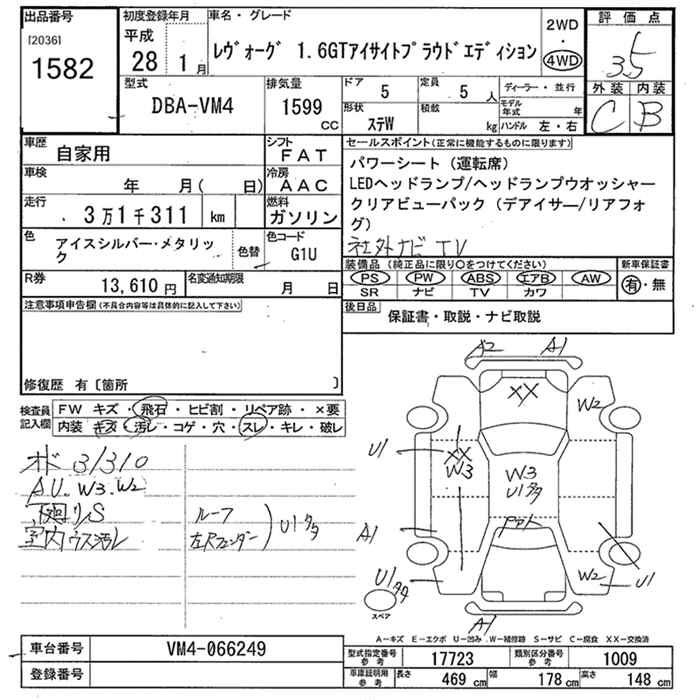 出品番号
[2036]
1582
初度登録年月
平成
28 1月
車名・グレード
レヴォーグ 1.6GTアイサイトプラウドエディション
2WD
・
4WD
評価点
3.5
外装 内装
C B
型式
DBA-VM4
排気量
1599
CC
ドア
5
定員
5人
形状
ステW
積数
kg
ディーラー・並行
モデル年式 年
ハンドル 左・右
車歴
自家用
シフト
FAT
車検
年 月( 日)
冷房
AAC
走行
3万1千311 km
燃料
ガソリン
色
アイスシルバー・メタリック
色替
色コード
G1U
R券
13,610円
名変通知期限
月 日
セールスポイント(正常に機能するものに限ります)
パワーシート(運転席)
LEDヘッドランプ/ヘッドランプウオッシャー
クリアビューパック(デアイサ―/リアフォグ)
社外ナビ TV
装備品(純正品に限り○をつけてください)
PS PW ABS エアB AW
SR ナビ TV カワ
新車保証書
有・無
後日品
保証書・取説・ナビ取説
注意事項申告欄(不具合内容等は具体的に記入して下さい)
修復歴 有〔箇所 〕
検査員
記入欄
FW キズ・飛石・ヒビ割・リペア跡・×要
内装 キズ・汚レ・コゲ・穴・スレ・キレ・破レ
オド 31310
A.U. W3.W2
室内ウス汚レ
ルーフ
左Rフェンダー
U1タタ
A2 A1
XX
W2
U1
XX
W3
W3
U1タタ
A1
U1タタ
スペア
W2
U1
A1
A―キズ E―エクボ U―凹み W―補修跡 S―サビ C―腐食 XX―交換済
車台番号
VM4-066249
登録番号
型式指定番号
参考
17723
類別区分番号
参考
1009
車庫証明用
参考
長さ
469 cm
幅
178 cm
高さ
148 cm